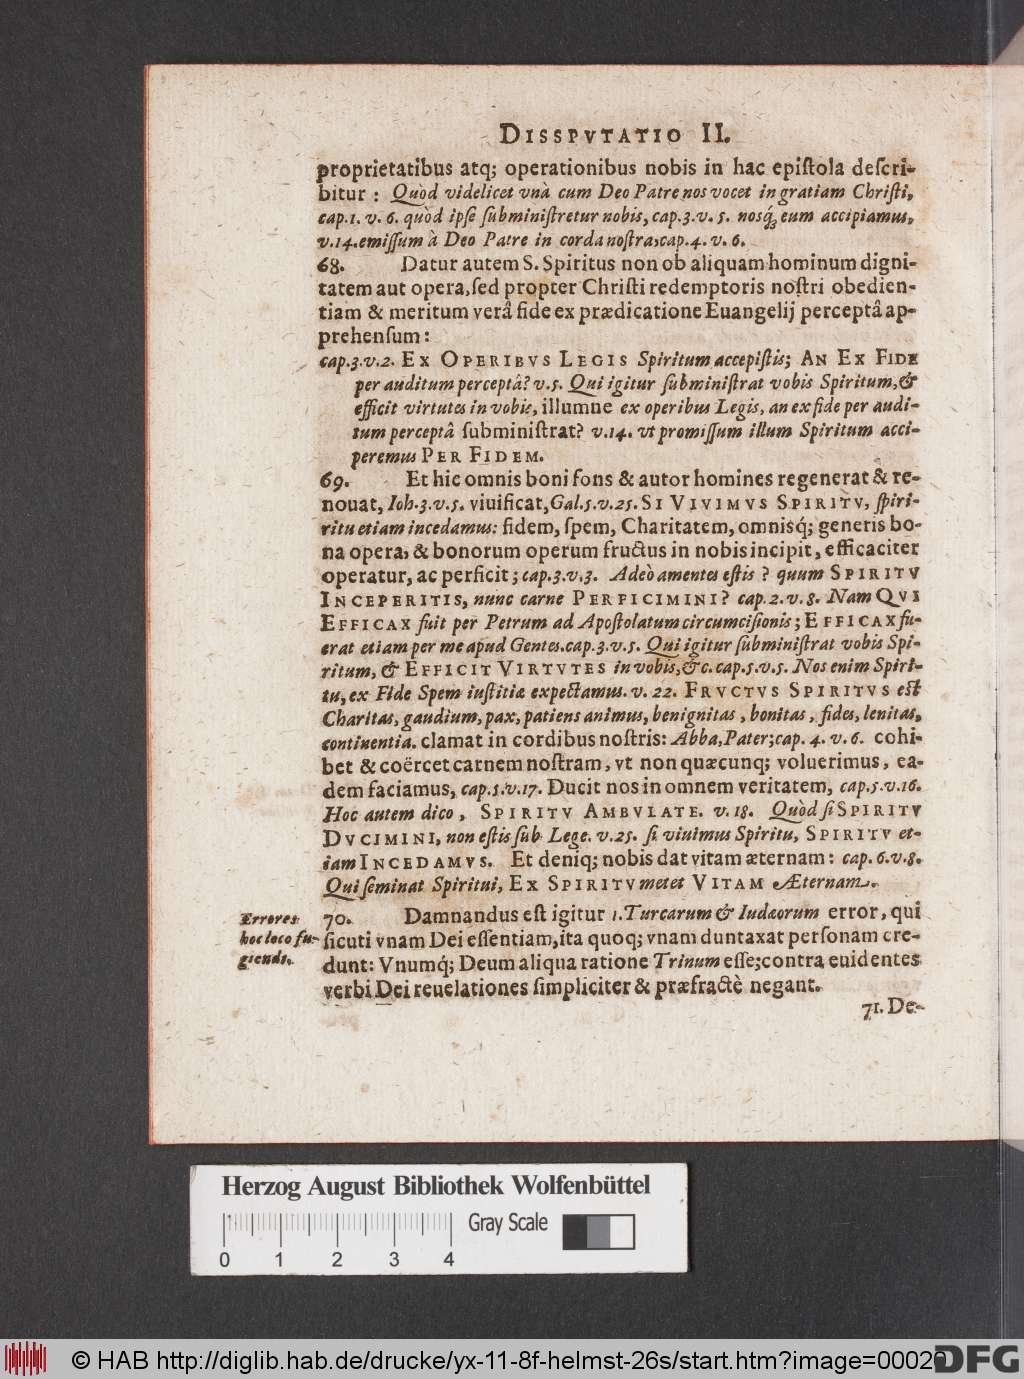 DISSPVTATIO II.
proprietatibus atq; operationibus nobis in hac epiſtola deſcri-
bitur : Quòd videlicet vnà cum Deo Patre nos vocet in gratiam Chriſti,
cap.1. v. 6. quòd ipſe ſubminiſtretur nobis, cap.3.v. 5. nosq́; eum accipiamus,
v.14. emiſſum à Deo Patre in corda noſtra, cap.4. v. 6.
68. Datur autem S. Spiritus non ob aliquam hominum digni-
tatem aut opera, ſed propter Chriſti redemptoris noſtri obedien-
tiam & meritum verâ fide ex prædicatione Euangelij perceptâ ap-
prehenſum:
cap.3.v.2. EX OPERIBVS LEGIS Spiritum accepiſtis; AN EX FIDE
per auditum perceptâ? v.5. Qui igitur ſubminiſtrat vobis Spiritum, &
efficit virtutes in vobis, illumne ex operibus Legis, an ex fide per audi-
tum perceptâ ſubminiſtrat? v.14. vt promiſſum illum Spiritum acci-
peremus PER FIDEM.
69. Et hic omnis boni fons & autor homines regenerat & re-
nouat, Ioh.3.v.5. viuificat, Gal.5.v.25. SI VIVIMVS SPIRITV, ſpiri-
ritu etiam incedamus: fidem, ſpem, Charitatem, omnisq́; generis bo-
na opera, & bonorum operum fructus in nobis incipit, efficaciter
operatur, ac perficit; cap.3.v.3. Adeò amentes eſtis ? quum SPIRITV
INCEPERITIS, nunc carne PERFICIMINI? cap.2.v.8. Nam QVI
EFFICAX fuit per Petrum ad Apoſtolatum circumciſionis; EFFICAX fu-
erat etiam per me apud Gentes. cap.3.v.5. Qui igitur ſubminiſtrat vobis Spi-
ritum, & EFFICIT VIRTVTES in vobis, &c. cap.5.v.5. Nos enim Spiri-
tu, ex Fide Spem iuſtitiæ expectamus. v. 22. FRVCTVS SPIRITVS eſt
Charitas, gaudium, pax, patiens animus, benignitas, bonitas, fides, lenitas,
continentia. clamat in cordibus noſtris: Abba, Pater; cap. 4. v. 6. cohi-
bet & coërcet carnem noſtram, vt non quæcunq; voluerimus, ea-
dem faciamus, cap.5.v.17. Ducit nos in omnem veritatem, cap.5.v.16.
Hoc autem dico, SPIRITV AMBVLATE. v. 18. Quòd ſi SPIRITV
DVCIMINI, non eſtis ſub Lege. v.25. ſi viuimus Spiritu, SPIRITV et-
iam INCEDAMVS. Et deniq; nobis dat vitam æternam: cap. 6.v.8.
Qui ſeminat Spiritui, EX SPIRITV metet VITAM Æternam.
Errores
hoc loco fu-
giendi.
70. Damnandus eſt igitur 1. Turcarum & Iudæorum error, qui
ſicuti vnam Dei eſſentiam, ita quoq; vnam duntaxat perſonam cre-
dunt: Vnumq́; Deum aliqua ratione Trinum eſſe; contra euidentes
verbi Dei reuelationes ſimpliciter & præfractè negant.
71. De-
Herzog August Bibliothek Wolfenbüttel
Gray Scale
0 1 2 3 4
© HAB http://diglib.hab.de/drucke/yx-11-8f-helmst-26s/start.htm?image=00020
DFG